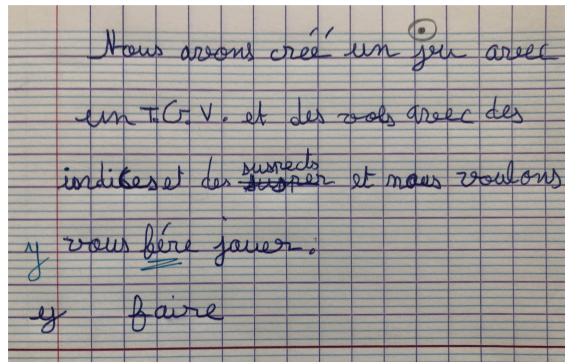 Nous avons créé un jeu avec
un T.G.V. et des vols avec des
indices et des suspects et nous voulons
y vous fére jouer.
y faire